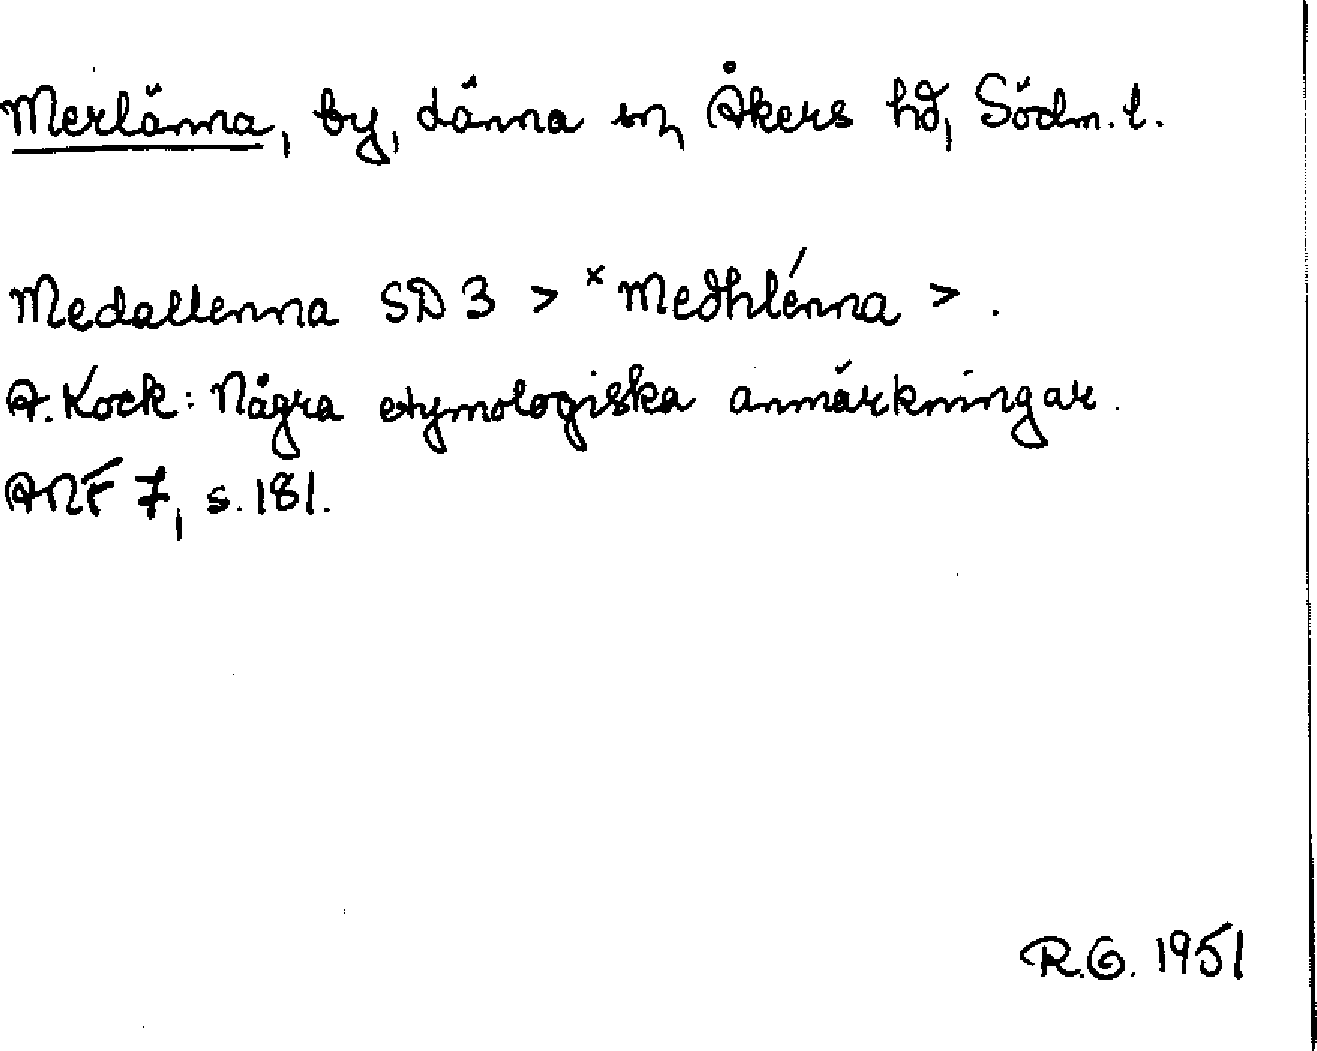 Merlänna, by, Länna sn, Åkers hd, Södm. l.
Medallenna SD 3 > ˣMeðhlénna > .
A. Kock: Några etymologiska anmärkningar.
ANF 7, s. 181.
R.G. 1951